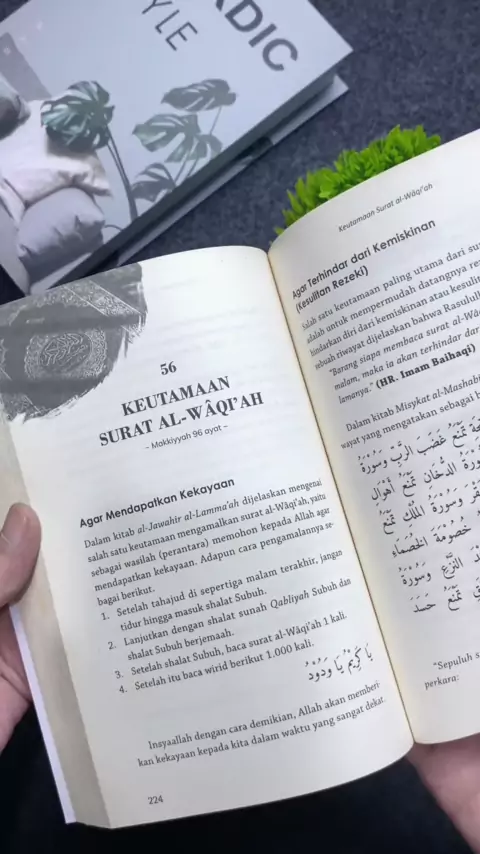 ADIC
STYLE
56
KEUTAMAAN
SURAT AL-WÂQI'AH
– Makkiyyah 96 ayat –
Agar Mendapatkan Kekayaan
Dalam kitab al-Jawahir al-Lamma'ah dijelaskan mengenai
salah satu keutamaan mengamalkan surat al-Wâqi'ah, yaitu
sebagai wasilah (perantara) memohon kepada Allah agar
mendapatkan kekayaan. Adapun cara pengamalannya se-
bagai berikut.
1. Setelah tahajud di sepertiga malam terakhir, jangan
tidur hingga masuk shalat Subuh.
2. Lanjutkan dengan shalat sunah Qabliyah Subuh dan
shalat Subuh berjemaah.
3. Setelah shalat Subuh, baca surat al-Wâqi'ah 1 kali.
4. Setelah itu baca wirid berikut 1.000 kali.
يَا كَرِيْمُ يَا وَدُوْدُ
Insyaallah dengan cara demikian, Allah akan memberi-
kan kekayaan kepada kita dalam waktu yang sangat dekat.
224
Keutamaan Surat al-Wâqi'ah
Agar Terhindar dari Kemiskinan
(Kesulitan Rezeki)
Salah satu keutamaan paling utama dari
adalah untuk mempermudah datangnya
hindarkan diri dari kemiskinan atau
sebuah riwayat dijelaskan bahwa
"Barang siapa membaca surat
malam, maka ia akan terhindar dari
lamanya." (HR. Imam Baihaqi)
Dalam kitab Misykat
wayat yang mengatakan sebagai
تَمْنَعُ غَضَبَ الرَّبِّ وَسُوْرَةُ
الدُّخَانِ تَمْنَعُ أَهْوَالَ
وَسُوْرَةُ الْمُلْكِ تَمْنَعُ
خُصُوْمَةَ الْخُصَمَاءِ
النَّزْعِ وَسُوْرَةُ
تَمْنَعُ حَسَدَ
"Sepuluh
perkara: